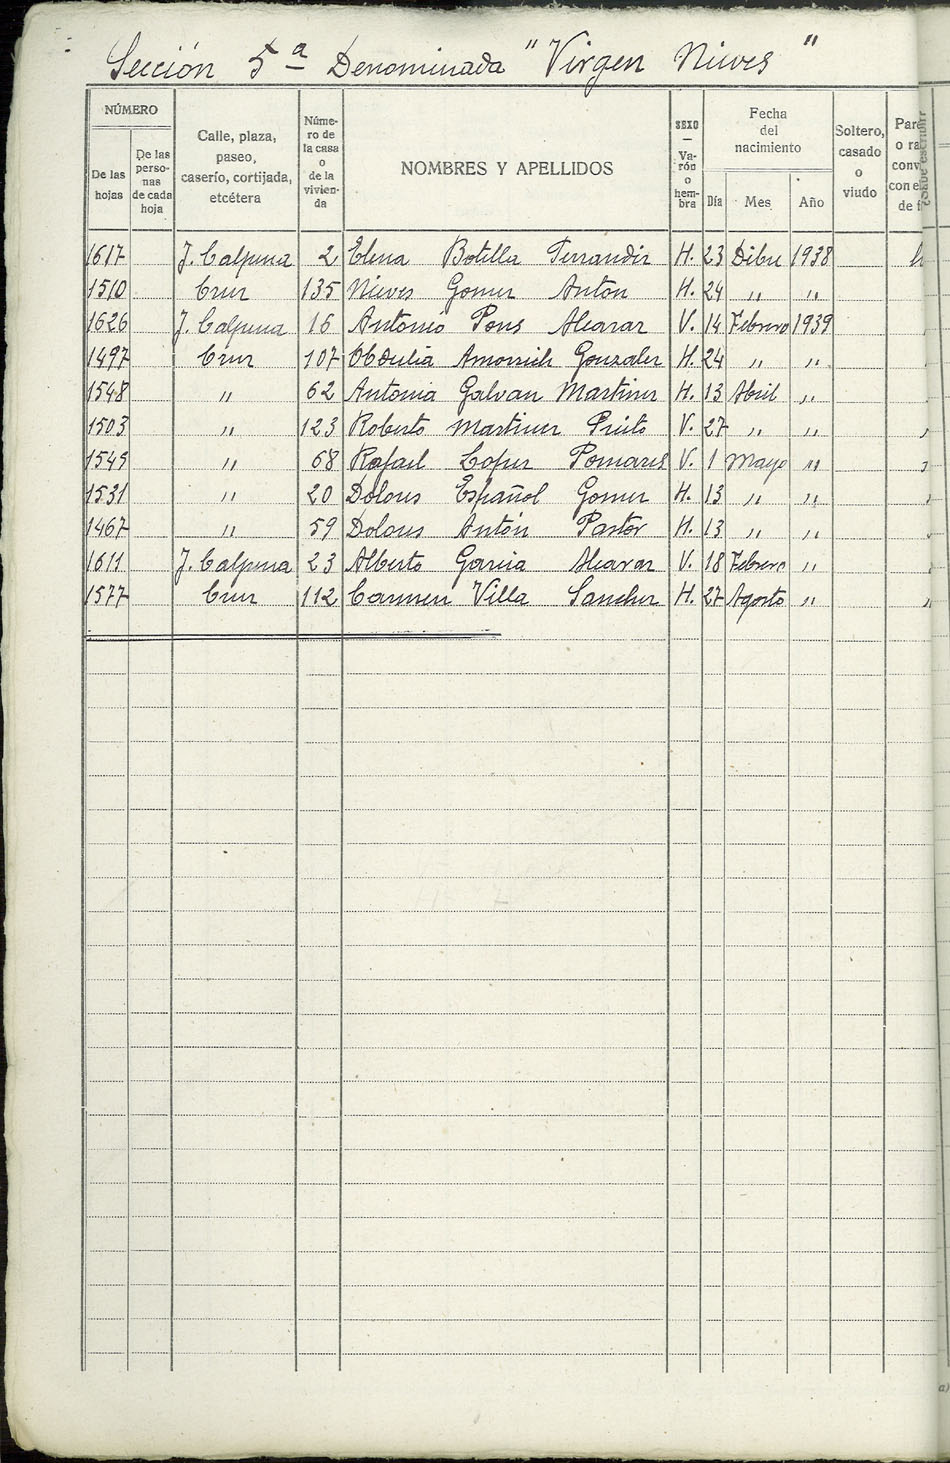 Sección 5ª Denominada "Virgen Nieves"
NÚMERO
De las hojas
De las perso-nas de cada hoja
Calle, plaza, paseo, caserío, cortijada, etcétera
Núme-ro de la casa o de la vivien-da
NOMBRES Y APELLIDOS
SEXO — Va-rón o hem-bra
Fecha del nacimiento
Día Mes Año
Soltero, casado o viudo
1617 J. Calpena 2 Elena Botella Ferrandiz H. 23 Dibre 1938
1510 Cruz 135 Nieves Gomez Anton H. 24 " "
1626 J. Calpena 16 Antonio Pons Alcaraz V. 14 Febrero 1939
1497 Cruz 107 Obdulia Amorrich Gonzalez H. 24 " "
1548 " 62 Antonia Galvan Martinez H. 13 Abril "
1503 " 123 Roberto Martinez Prieto V. 27 " "
1545 " 68 Rafael Lopez Pomares V. 1 Mayo "
1531 " 20 Dolores Español Gomez H. 13 " "
1467 " 59 Dolores Antón Pastor H. 13 " "
1611 J. Calpena 23 Alberto Garcia Alcaraz V. 18 Febrero "
1577 Cruz 112 Carmen Villa Sanchez H. 27 Agosto "